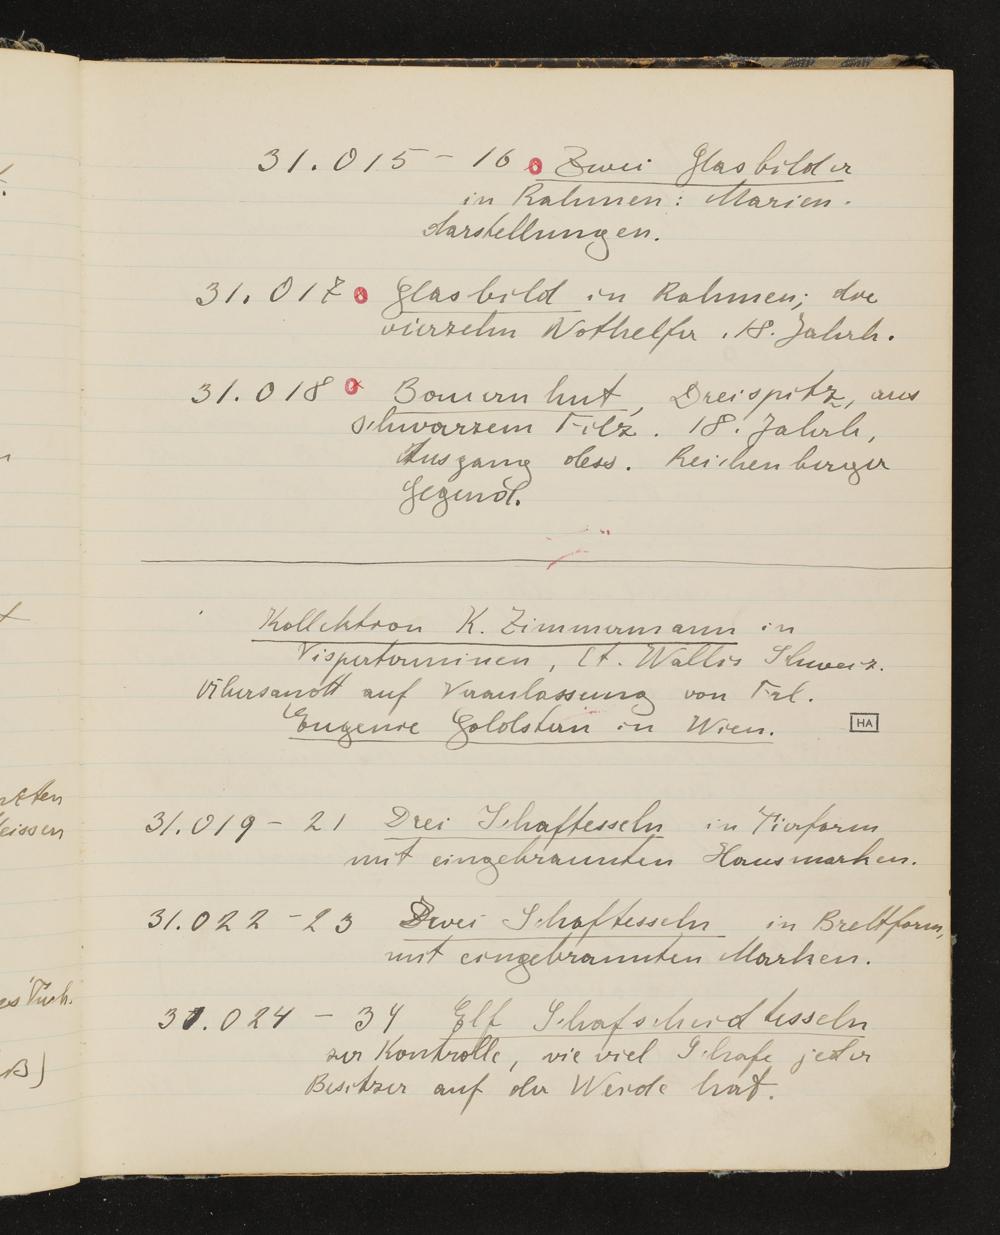 31.015 - 16 Zwei Glasbilder
in Rahmen: Marien-
darstellungen.
31.017 Glasbild in Rahmen; die
vierzehn Nothelfer. 18. Jahrh.
31.018 Bauernhut, Dreispitz, aus
schwarzem Filz. 18. Jahrh,
Ausgang dess. Reichenberger
Gegend.
Kollektion K. Zimmermann in
Visperterminen, Ct. Wallis Schweiz.
Übersandt auf Veranlassung von Frl.
Eugenie Goldstern in Wien.
HA
31.019 - 21 Drei Schaftesseln in Tierform
mit eingebrannten Hausmarken.
31.022 - 23 Zwei Schaftesseln in Brettform,
mit eingebrannten Marken.
31.024 - 34 Elf Schafscheidtesseln
zur Kontrolle, wie viel Schafe jeder
Besitzer auf der Weide hat.